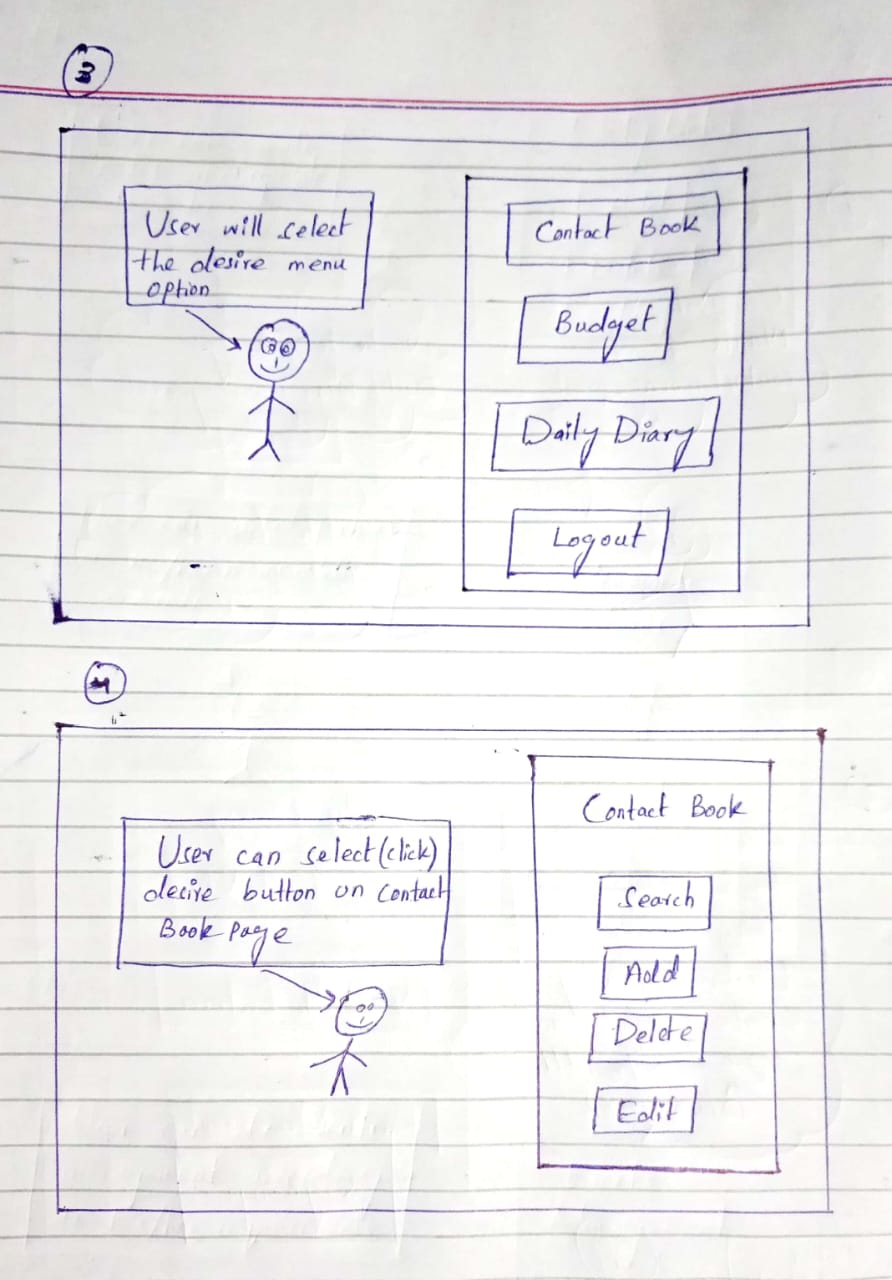 3
User will select
the desire menu
option
Contact Book
Budget
Daily Diary
Logout
4
User can select (click)
decire button on Contact
Book page
Contact Book
Search
Add
Delete
Edit